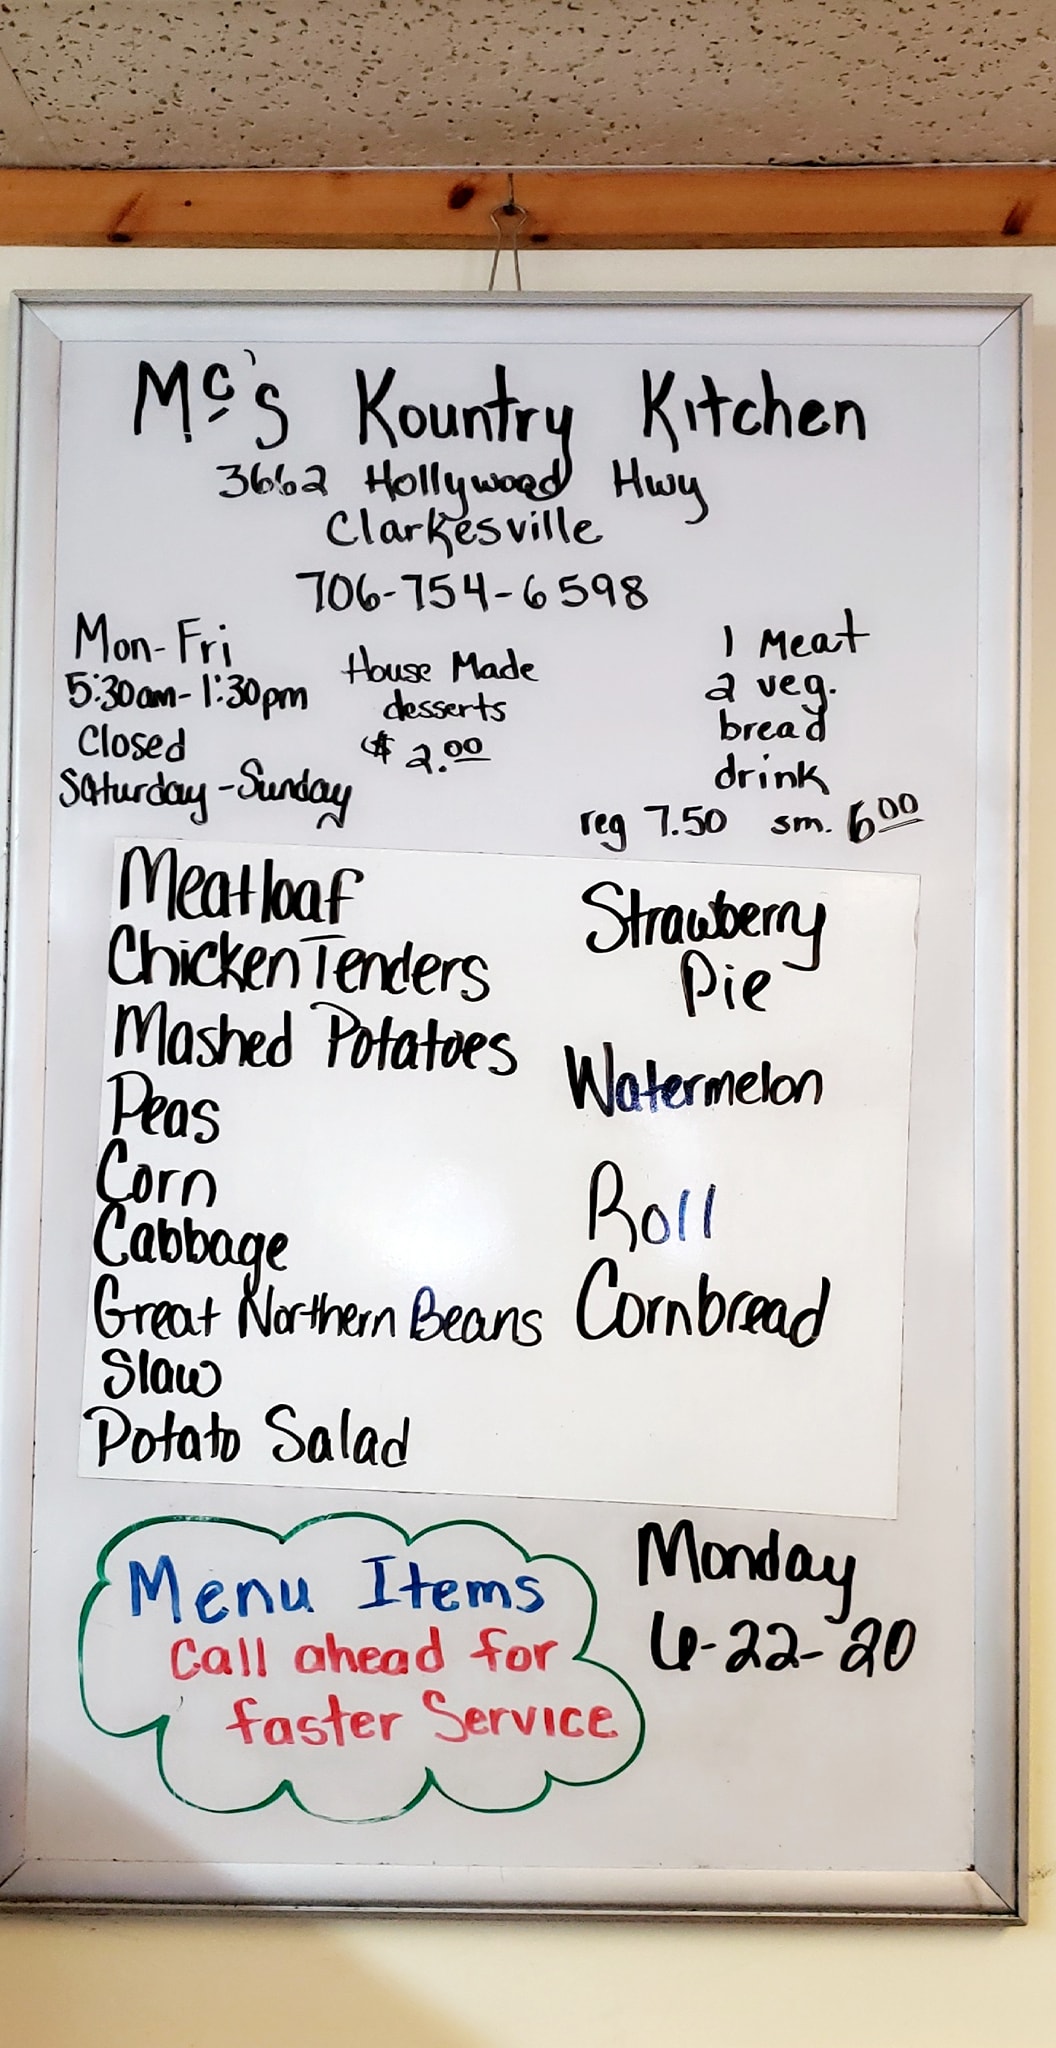 Mc's Kountry Kitchen
3662 Hollywood Hwy
Clarkesville
706-754-6598
Mon-Fri
5:30am-1:30pm
Closed
Saturday-Sunday
House Made
desserts
$2.00
1 Meat
2 veg.
bread
drink
reg 7.50 sm. 6.00
Meatloaf
Chicken Tenders
Mashed Potatoes
Peas
Corn
Cabbage
Great Northern Beans
Slaw
Potato Salad
Strawberry
Pie
Watermelon
Roll
Cornbread
Menu Items
Call ahead for
faster Service
Monday
6-22-20